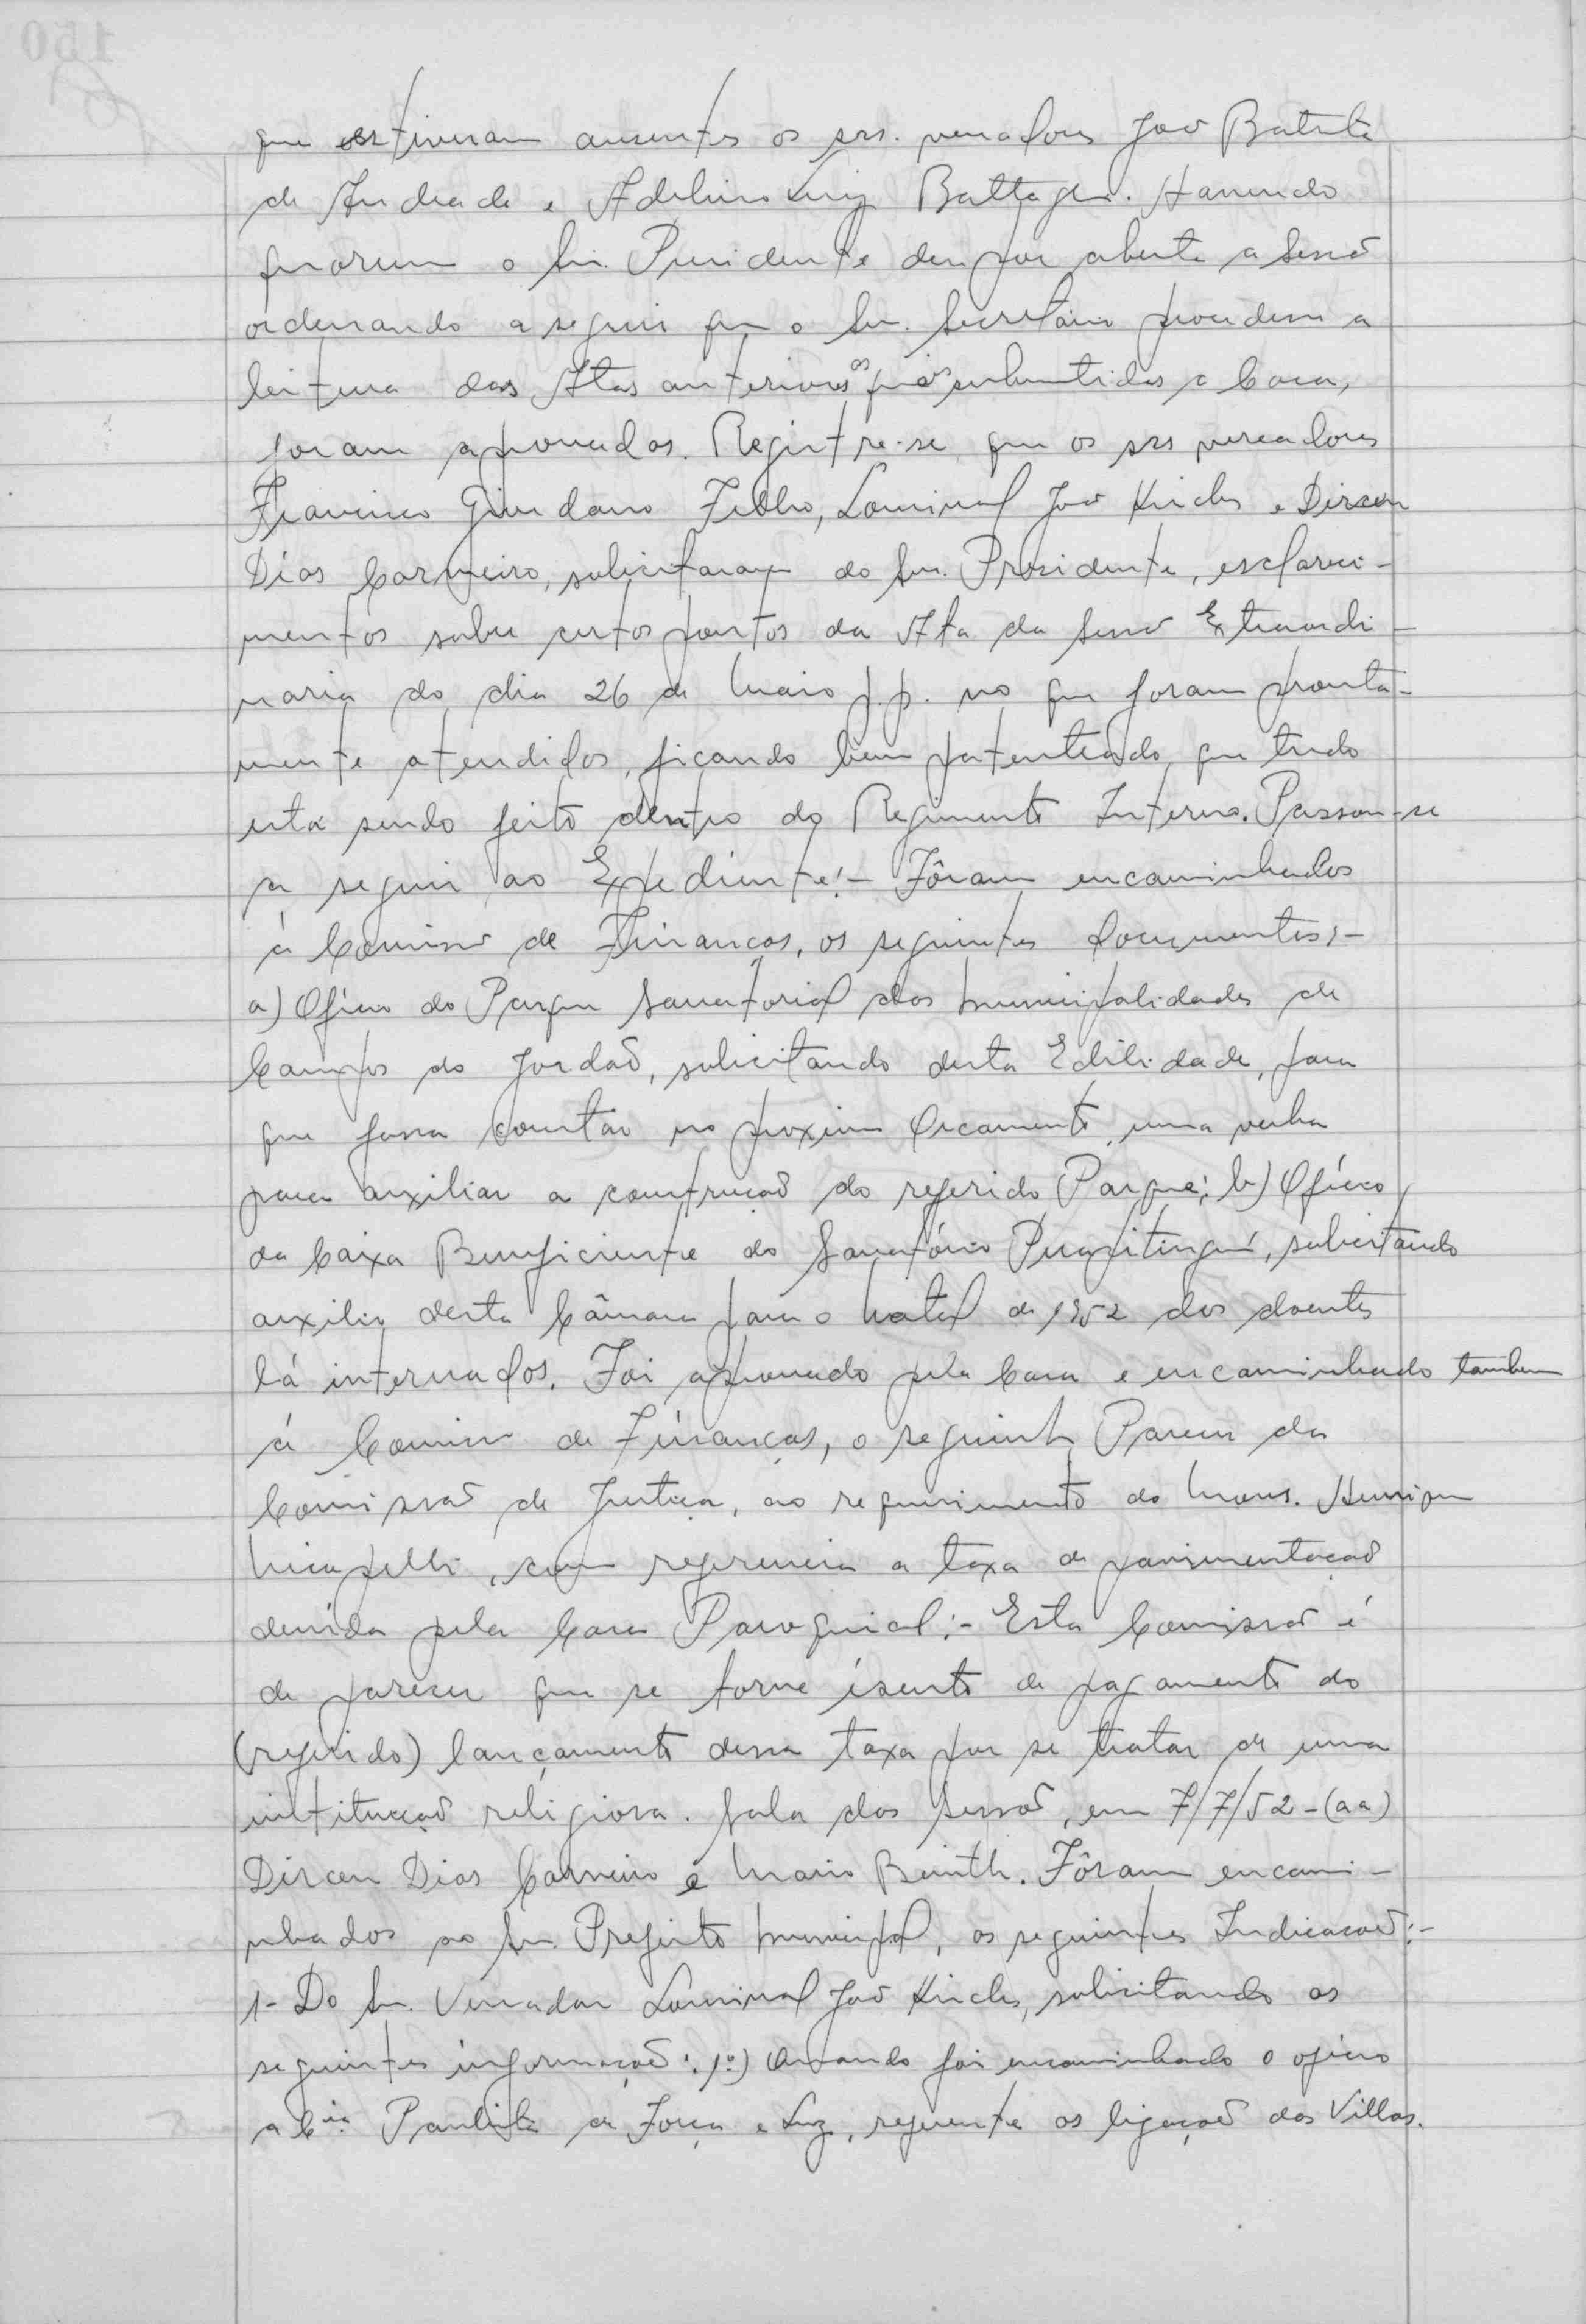 que estiveram ausentes os srs. vereadores João Batista
de Andrade e Adelino Luiz Battaglia. Havendo
quorum o Snr. Presidente deu por aberta a Sessão
ordenando a seguir que o Snr. Secretário procedesse a
leitura das Atas anteriores as quais submetidas a Casa,
foram aprovadas. Registre-se que os srs vereadores
Francisco Giordano Filho, Lourival João Kirche e Dirceu
Dias Carneiro, solicitaram do Snr. Presidente, esclareci-
mentos sobre certos pontos da Ata da Sessão Extraordi-
naria do dia 26 de Maio p.p. no que foram pronta-
mente atendidos, ficando bem patenteado que tudo
esta sendo feito dentro do Regimento Interno. Passou-se
a seguir ao Expediente:- Fôram encaminhados
à Comissão de Finanças, os seguintes documentos:-
a) Oficio do Parque Sanatorial das Municipalidades de
Campos do Jordão, solicitando desta Edilidade, para
que faça constar no proximo Orçamento, uma verba
para auxiliar a construção do referido Parque; b) Ofício
da Caixa Beneficiente do Sanatório Pirapitinguí, solicitando
auxilio desta Câmara para o Natal de 1952 dos doentes
lá internados. Foi aprovado pela Casa e encaminhado tambem
à Comissão de Finanças, o seguinte Parecer da
Comissão de Justiça, ao requerimento do Mons. Henrique
Nicopelli, com referencia a taxa de pavimentação
devida pela Casa Paroquial:- Esta Comissão é
de parecer que se torne isento de pagamento do
(referido) lançamento dessa taxa por se tratar de uma
instituição religiosa. Sala das Sessões, em 7/7/52 - (aa)
Dirceu Dias Carneiro e Mario Beinth. Fôram encami-
nhados ao Snr. Prefeito Municipal, as seguintes Indicações:-
1- Do Snr. Vereador Lourival João Kirche, solicitando as
seguintes informações: 1º) Quando foi encaminhado o oficio
a Cia. Paulista de Força e Luz, referente as ligações das Villas.